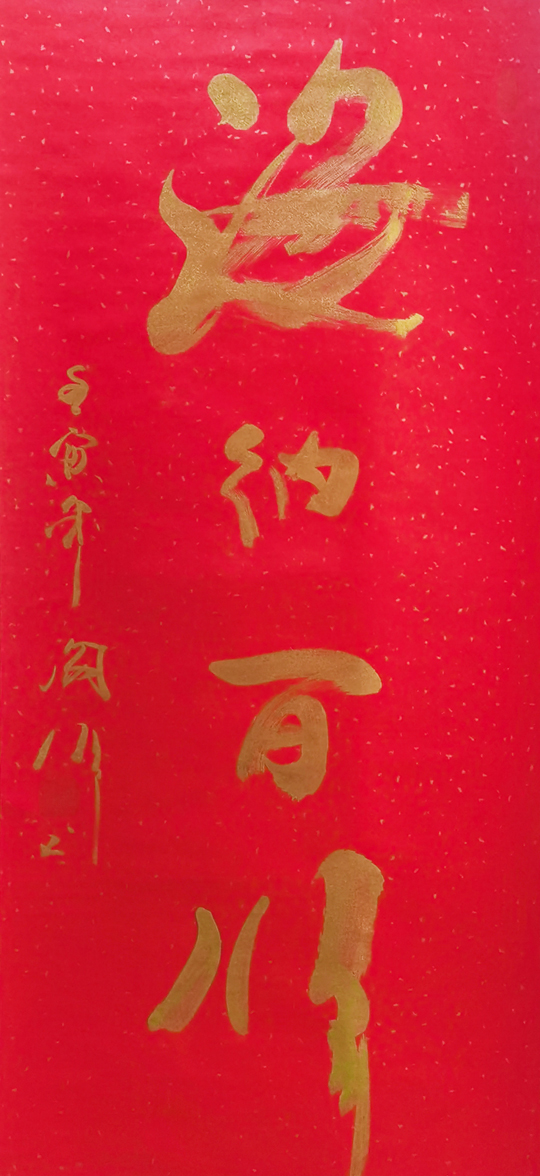 海纳百川
壬寅年 川书